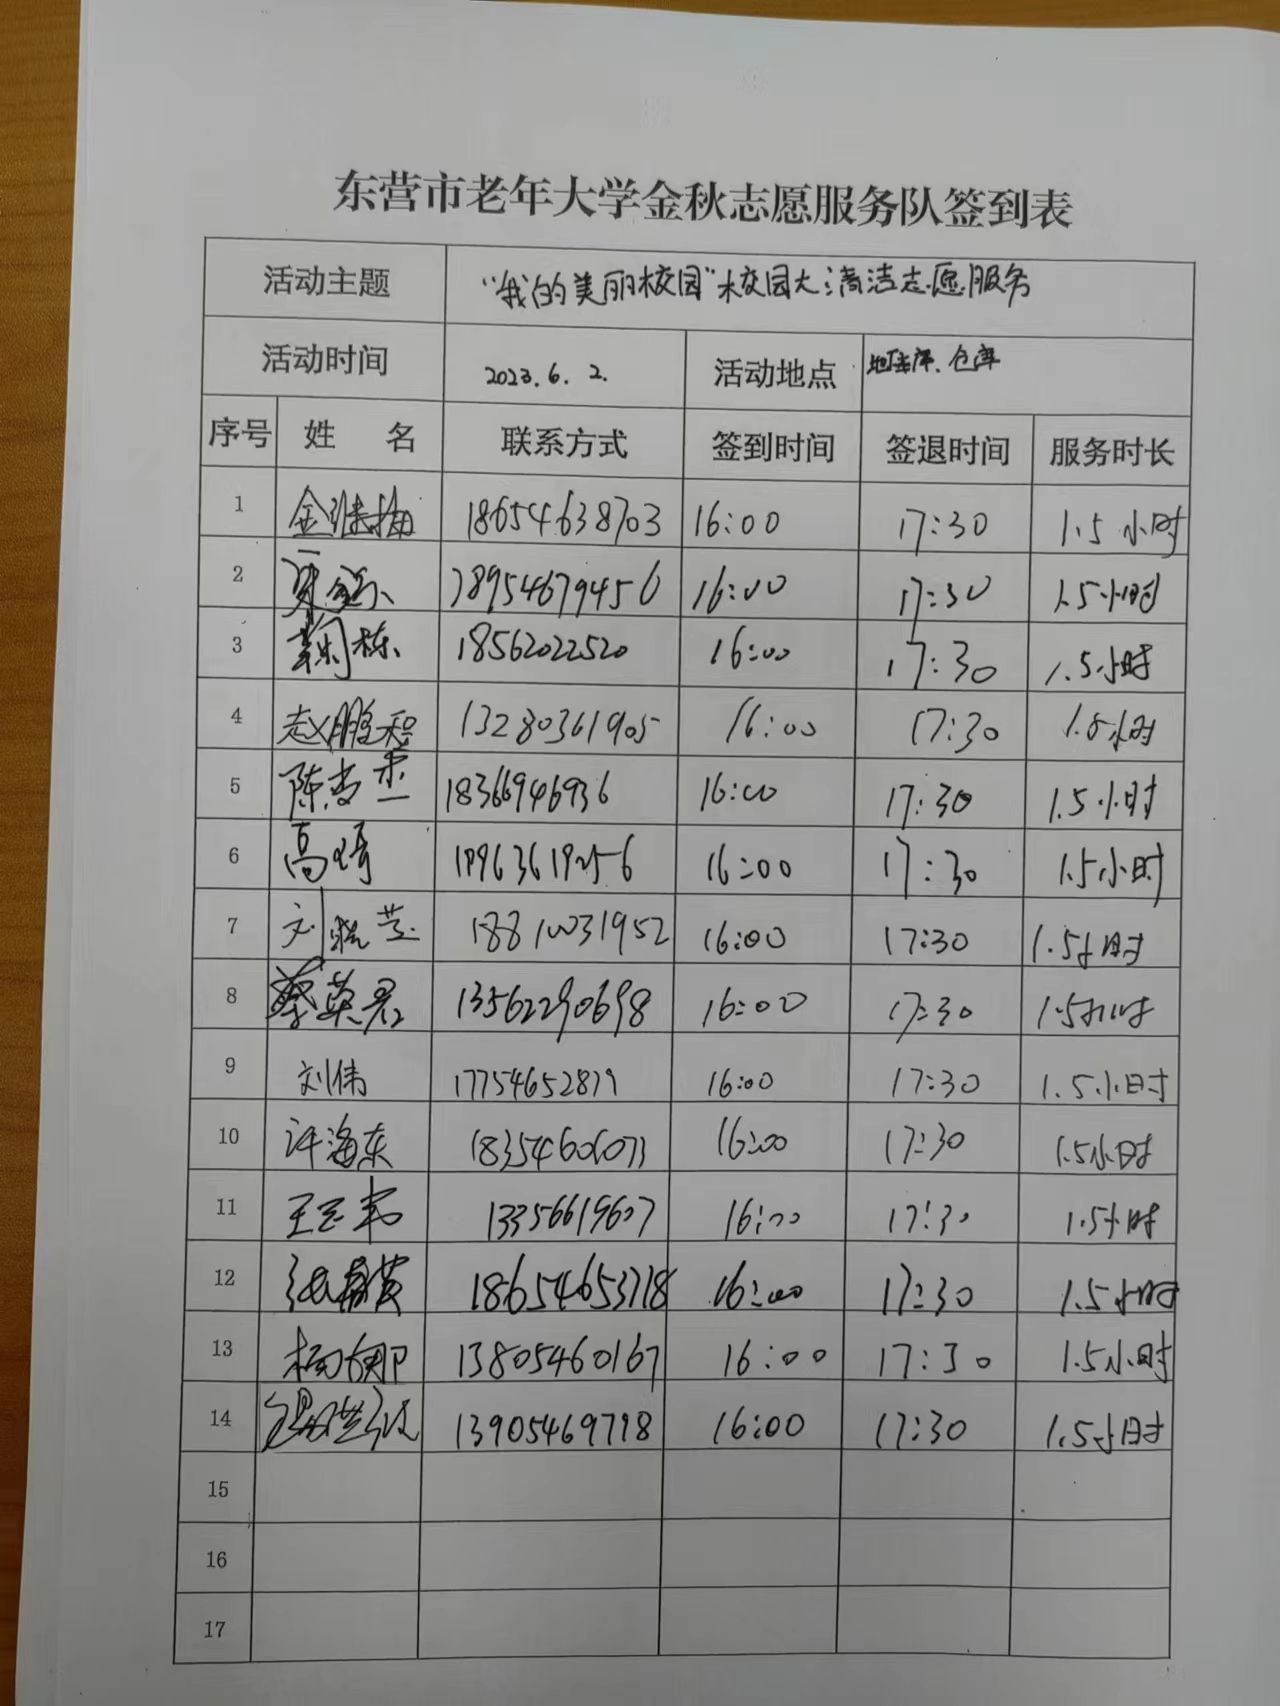 东营市老年大学金秋志愿服务队签到表
活动主题 “我的美丽校园”校园大清洁志愿服务
活动时间 2023.6.2. 活动地点 地下车库、仓库
序号 姓 名 联系方式 签到时间 签退时间 服务时长
1 金继梅 18654638703 16:00 17:30 1.5小时
2 18954679456 16:00 17:30 1.5小时
3 18562022520 16:00 17:30 1.5小时
4 赵鹏程 13280361905 16:00 17:30 1.5小时
5 18366946936 16:00 17:30 1.5小时
6 高琦 16:00 17:30 1.5小时
7 刘 18810031952 16:00 17:30 1.5小时
8 蔡英君 13562290698 16:00 17:30 1.5小时
9 刘伟 17754652879 16:00 17:30 1.5小时
10 许海东 16:00 17:30 1.5小时
11 13356619607 16:00 17:30 1.5小时
12 18654653718 16:00 17:30 1.5小时
13 杨娜 13805460167 16:00 17:30 1.5小时
14 13905469718 16:00 17:30 1.5小时
15
16
17